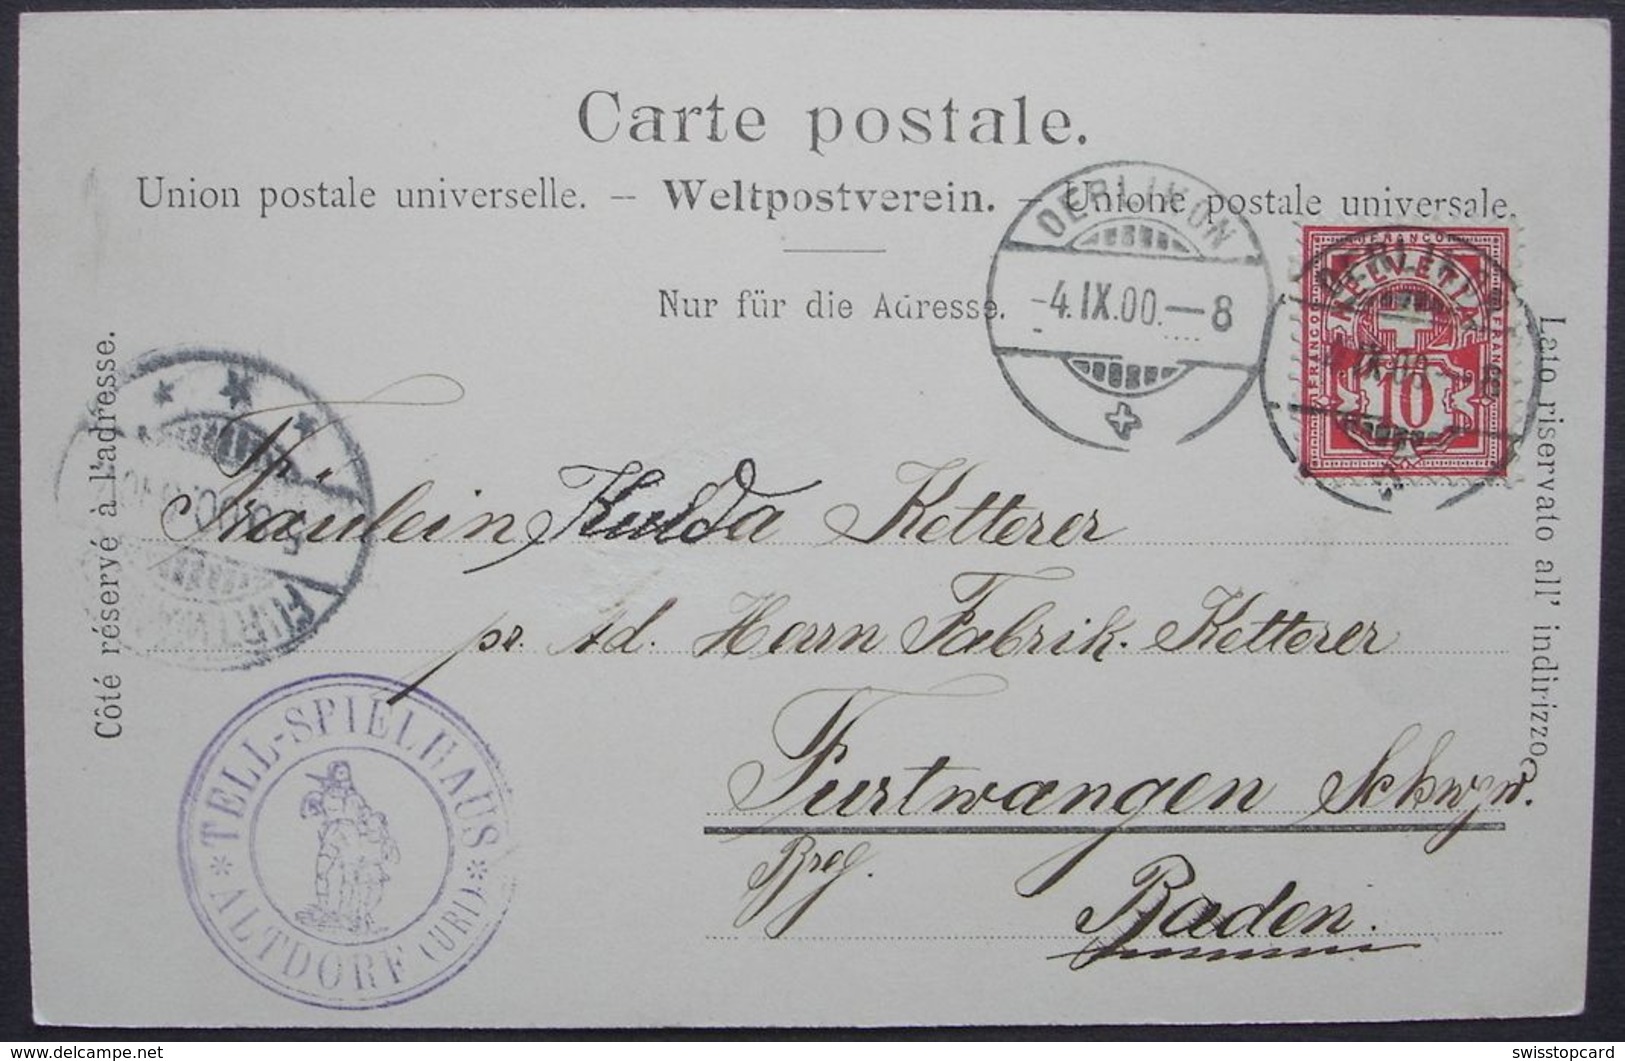 Carte postale.
Union postale universelle. — Weltpostverein. — Unione postale universale.
Nur für die Adresse.
Côté réservé à l'adresse.
Lato riservato all' indirizzo.
OERLIKON
-4.IX.00.—8
FRANCO
HELVETIA
FRANCO
FRANCO
10
OERLI
IX.00
FURTWA
Fräulein Hulda Ketterer
pr. Ad. Herrn Fabrik. Ketterer
Furtwangen Schwzw.
Breg.
Baden.
* TELL-SPIELHAUS *
ALTDORF (URI)
www.delcampe.net
swisstopcard